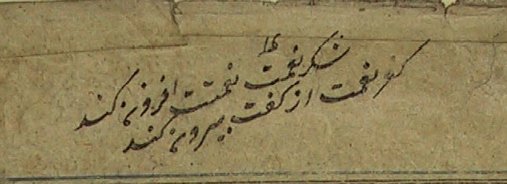 شکر نعمت نعمتت افزون کند
کفر نعمت از کفت بیرون کند